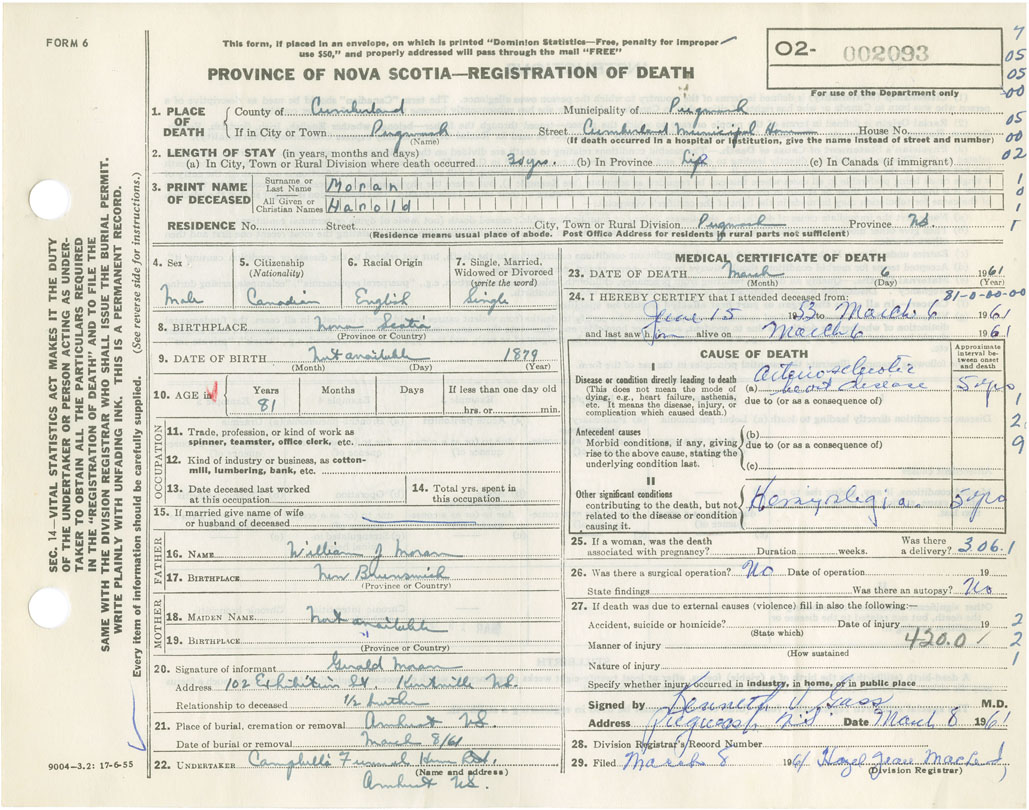 FORM 6
This form, if placed in an envelope, on which is printed "Dominion Statistics—Free, penalty for improper
use $50," and properly addressed will pass through the mail "FREE"
PROVINCE OF NOVA SCOTIA—REGISTRATION OF DEATH
O2- 002093
For use of the Department only
7
05
05
00
05
00
02
1
0
1
SEC. 14—VITAL STATISTICS ACT MAKES IT THE DUTY
OF THE UNDERTAKER OR PERSON ACTING AS UNDER-
TAKER TO OBTAIN ALL THE PARTICULARS REQUIRED
IN THE "REGISTRATION OF DEATH" AND TO FILE THE
SAME WITH THE DIVISION REGISTRAR WHO SHALL ISSUE THE BURIAL PERMIT.
WRITE PLAINLY WITH UNFADING INK. THIS IS A PERMANENT RECORD.
Every item of information should be carefully supplied. (See reverse side for instructions.)
1. PLACE OF DEATH
County of Cumberland Municipality of Pugwash
If in City or Town Pugwash Street Cumberland Municipal Home House No.
(Name) (If death occurred in a hospital or institution, give the name instead of street and number)
2. LENGTH OF STAY (in years, months and days)
(a) In City, Town or Rural Division where death occurred 30 yrs. (b) In Province Life (c) In Canada (if immigrant)
3. PRINT NAME OF DECEASED
Surname or Last Name Moran
All Given or Christian Names Harold
RESIDENCE No. Street City, Town or Rural Division Pugwash Province NS
(Residence means usual place of abode. Post Office Address for residents in rural parts not sufficient)
4. Sex
Male
5. Citizenship
(Nationality)
Canadian
6. Racial Origin
English
7. Single, Married,
Widowed or Divorced
(write the word)
Single
8. BIRTHPLACE Nova Scotia
(Province or Country)
9. DATE OF BIRTH Not available 1879
(Month) (Day) (Year)
10. AGE in
Years Months Days If less than one day old
81 hrs. or min.
OCCUPATION
11. Trade, profession, or kind of work as
spinner, teamster, office clerk, etc.
12. Kind of industry or business, as cotton-
mill, lumbering, bank, etc.
13. Date deceased last worked
at this occupation
14. Total yrs. spent in
this occupation
15. If married give name of wife
or husband of deceased
FATHER
16. NAME William J Moran
17. BIRTHPLACE New Brunswick
(Province or Country)
MOTHER
18. MAIDEN NAME Not available
19. BIRTHPLACE "
(Province or Country)
20. Signature of informant Gerald Moran
Address 102 Exhibition St. Kentville NS.
Relationship to deceased 1/2 brother
21. Place of burial, cremation or removal Amherst NS.
Date of burial or removal March 8/61
22. UNDERTAKER Campbell's Funeral Home
(Name and address)
Amherst NS.
9004-3.2: 17-6-55
MEDICAL CERTIFICATE OF DEATH
23. DATE OF DEATH March 6 1961
(Month) (Day) (Year)
81-0-00-00
24. I HEREBY CERTIFY that I attended deceased from:
June 15 1953 to March 6 1961
and last saw him alive on March 6 1961
CAUSE OF DEATH
Approximate
interval be-
tween onset
and death
I
Disease or condition directly leading to death
(This does not mean the mode of
dying, e.g., heart failure, asthenia,
etc. It means the disease, injury, or
complication which caused death.)
(a) Arteriosclerotic heart disease 5 yrs
due to (or as a consequence of)
Antecedent causes
Morbid conditions, if any, giving
rise to the above cause, stating the
underlying condition last.
(b)
due to (or as a consequence of)
(c)
1
2
9
II
Other significant conditions
contributing to the death, but not
related to the disease or condition
causing it.
Hemiplegia. 5 yrs
25. If a woman, was the death
associated with pregnancy? Duration weeks. Was there
a delivery? 3.06.1
26. Was there a surgical operation? No Date of operation 19
State findings Was there an autopsy? No
27. If death was due to external causes (violence) fill in also the following:—
Accident, suicide or homicide? Date of injury 19
(State which)
Manner of injury 420.0
(How sustained
Nature of injury
2
2
1
Specify whether injury occurred in industry, in home, or in public place
Signed by Kenneth V Gass M.D.
Address Pugwash N.S. Date March 8 1961
28. Division Registrar's Record Number
29. Filed March 8 1961 Hazel Jean MacLeod
(Division Registrar)